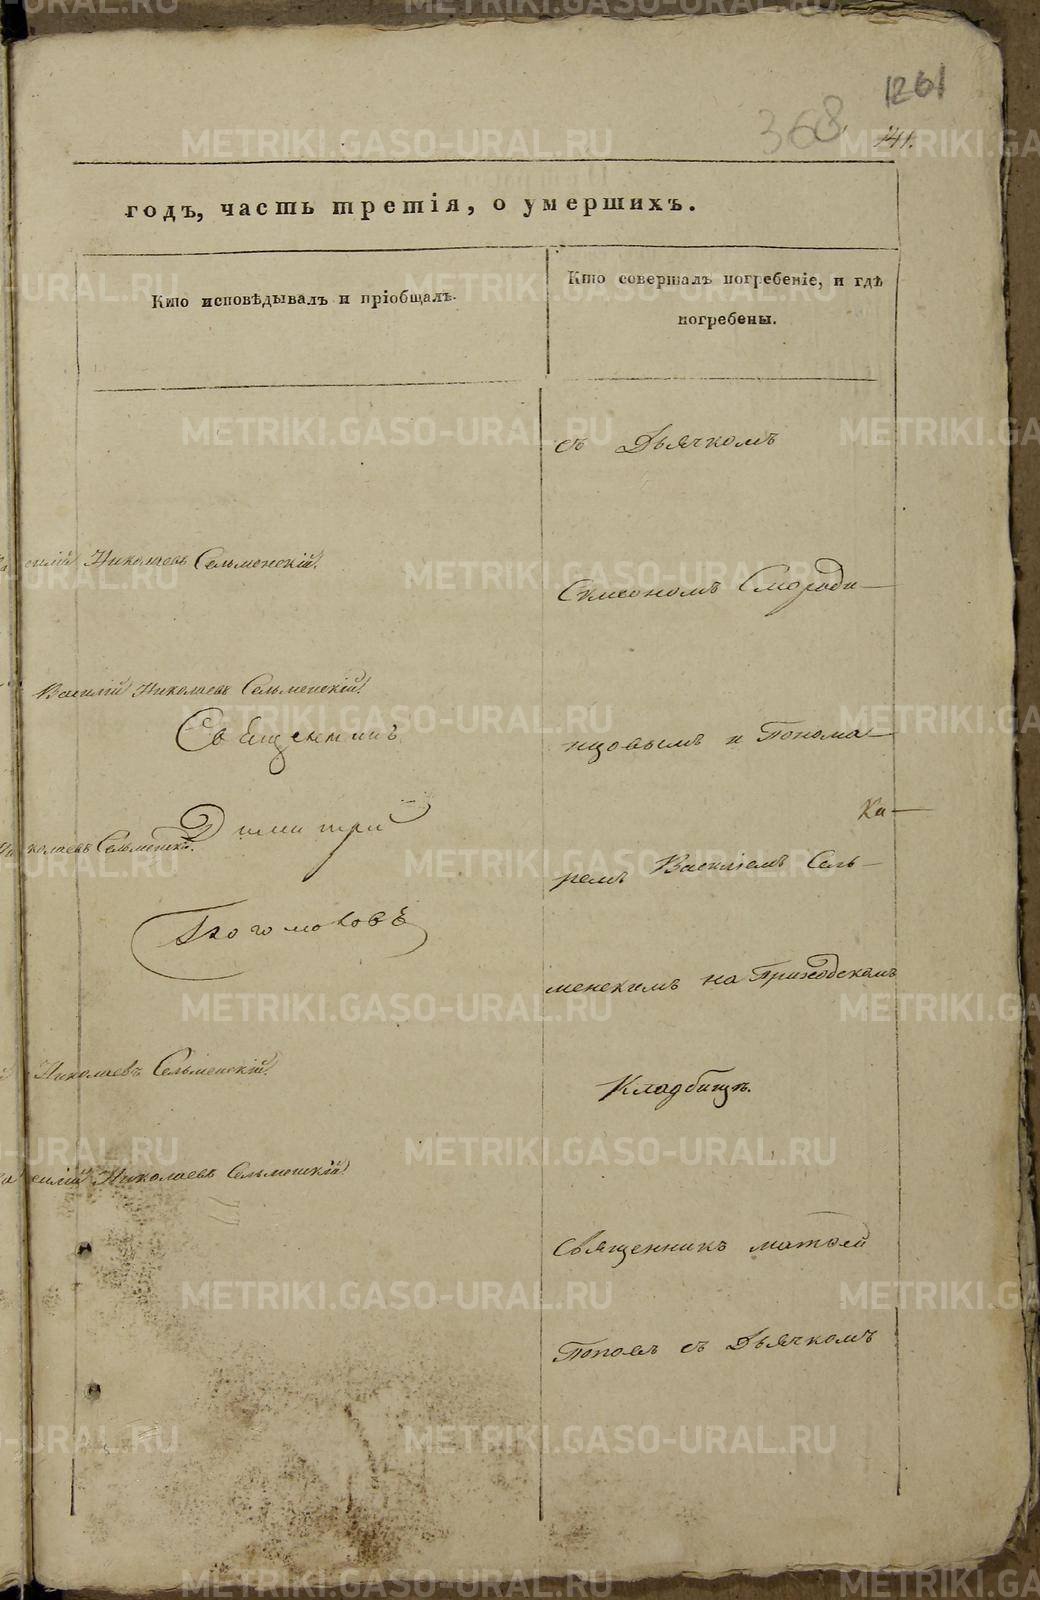 1261
368
141.
годъ, часть третія, о умершихъ.
Кто исповѣдывалъ и пріобщалъ.
Кто совершалъ погребеніе, и гдѣ
погребены.
съ Дьячкомъ
силій Николаевъ Сельменскій.
Симеономъ Смороди-
Василій Николаевъ Сельменскій.
Священникъ
нцовымъ и Понома-
Ка-
Димитрій
колаевъ Сельменскій.
ремъ Василіемъ Сель-
Богомоловъ
менскимъ на Приходскомъ
Николаевъ Сельменскій.
Кладбищѣ.
силій Николаевъ Сельменскій.
Священникъ Матѳей
Поповъ съ Дьячкомъ
METRIKI.GASO-URAL.RU